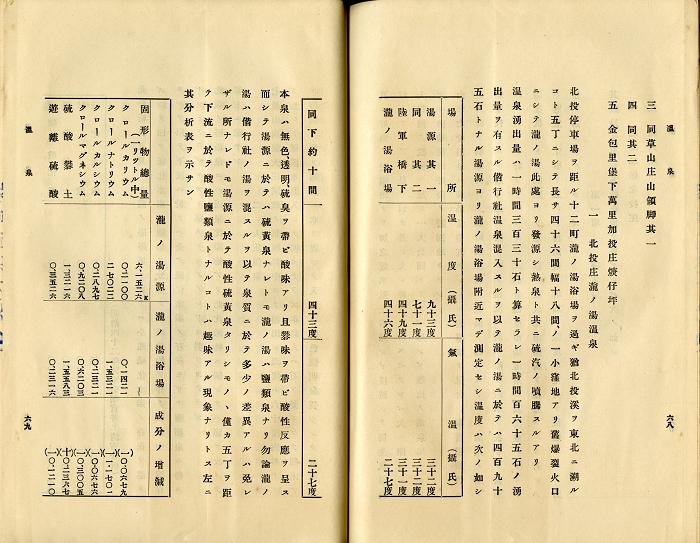 溫泉
六八
三 同草山庄山領脚其一
四 同其二
五 金包里堡下萬里加投庄㿾仔坪
一 北投庄瀧ノ湯溫泉
北投停車場ヲ距ル十二町瀧ノ湯浴場ヲ過ギ猶北投溪ヲ東北ニ溯ル
コト五丁ニシテ長サ四十六間幅十八間ノ一小窪地アリ舊爆裂火口
ニシテ瀧ノ湯此處ヨリ發源シ熱泉ト共ニ硫汽ノ噴騰スルアリ
溫泉湧出量ハ一時間三百三十石ト算セラレ一時間百六十五石ノ湧
出量ヲ有スル偕行社溫泉混入スルヲ以テ瀧ノ湯ニ於テハ四百九十
五石トナル湯源ヨリ瀧ノ湯浴場附近マデ測定セシ溫度ハ次ノ如シ
場所 溫度(攝氏) 氣溫(攝氏)
湯源其一 九十三度 三十二度
同其二 七十一度 三十二度
陸軍橋下 四十九度 三十一度
瀧ノ湯浴場 四十六度 二十七度
同下約十間 四十三度 二十七度
本泉ハ無色、透明、硫臭ヲ帶ビ酸味アリ且礬味ヲ帶ビ酸性反應ヲ呈ス
而シテ湯源ニ於テハ硫黃泉ナレトモ瀧ノ湯ハ鹽類泉ナリ勿論瀧ノ
湯ハ偕行社ノ湯ヲ混スルヲ以テ泉質ニ於テ多少ノ差異アルハ免レ
ザル所ナレドモ湯源ニ於テ酸性硫黃泉タリシモノ、僅カ五丁ヲ距
テ下流ニ於テ酸性鹽類泉トナルコトハ趣味アル現象ナリトス左ニ
其分析表ヲ示サン
瀧ノ湯源 瀧ノ湯浴場 成分ノ增減
固形物總量(一リットル中) 六・二五二六
クロールカリウム 〇・二一〇〇 〇・一四二一 (一)〇・〇六七九
クロールナトリウム
クロールカルシウム 〇・二八九七
クロールマグネシウム 〇・九二〇八 〇・六二〇三 (一)〇・三〇〇五
硫酸礬土
遊離硫酸
溫泉
六九